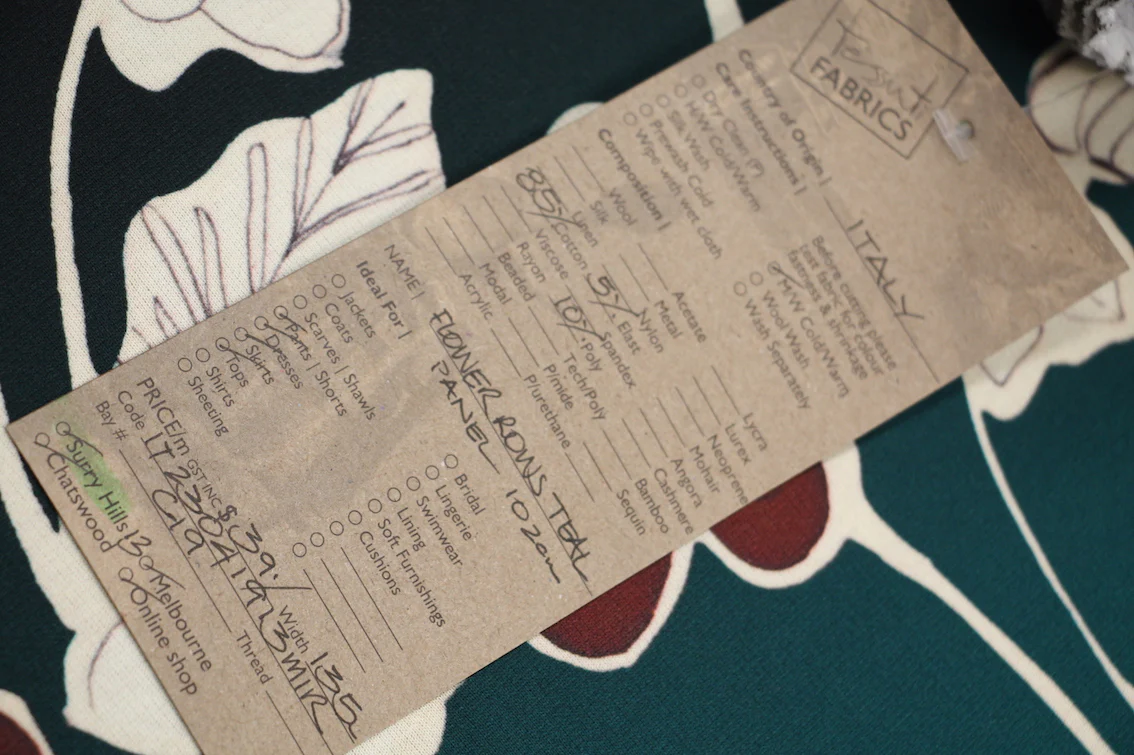 Tessuti
FABRICS
Country of Origin | ITALY
Care Instructions |
Dry Clean (P)
H/W Cold/Warm
Silk Wash
Prewash Cold
Wipe with wet cloth
Before cutting please
test fabric for colour
fastness & shrinkage
M/W Cold/Warm
Wool Wash
Wash Separately
Composition |
Wool
Silk
Linen
85% Cotton
Viscose
Rayon
Beaded
Modal
Acrylic
Acetate
Metal
Nylon
5% Elast
Spandex
10% Poly
Tech/Poly
P/mide
P/urethane
Lycra
Lurex
Neoprene
Mohair
Angora
Cashmere
Bamboo
Sequin
NAME | FLOWER ROWS TEAL
PANEL 102cm
Ideal For |
Jackets
Coats
Scarves | Shawls
Pants | Shorts
Dresses
Skirts
Tops
Shirts
Sheeting
Bridal
Lingerie
Swimwear
Lining
Soft Furnishings
Cushions
PRICE/m GST INC $39./ Width 135
Code LT23041923MIR
Bay # C19 Thread
Surry Hills 13 Melbourne
Chatswood Online shop